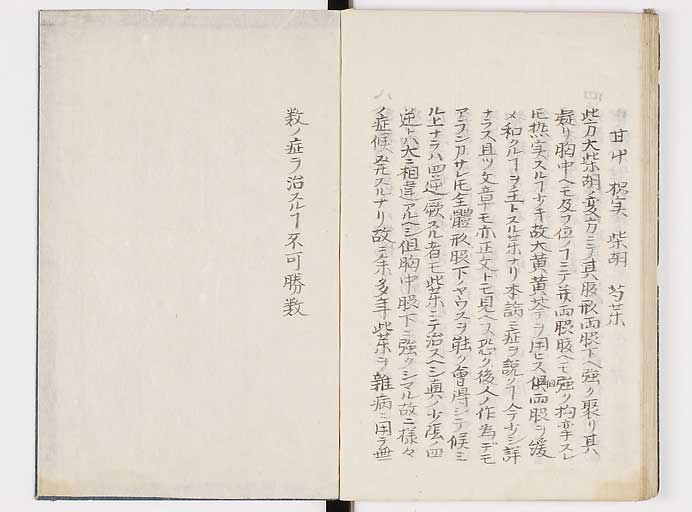 甘艸 枳実 柴胡 芍薬
此方大柴胡ノ変方ニシテ其腹形両脇下ヘ強ク聚リ其
凝リ胸中ヘモ及フ位ノヿニテ並両脇腹ヘモ強ク拘挛スレ
𪜈熱実スルヿ少キ故大黄黄芩ヲ用ヒス但両脇ヲ緩
メ和クルヿヲ主トスル薬ナリ本論ニ症ヲ説クヿ今少シ詳
ナラス且ツ文章モ亦正文トモ見ヘス恐ク後人ノ作為デモ
アランカサレ𪜈全體形腹下ノヤウスヲ能ク會得シテ候ニ
ル上ナラハ四逆厥スル者モ此薬ニテ治スヘシ真ノ少陰ノ四
逆トハ大ニ相違アルヘシ但胸中脇下ニ強クシマル故ニ様々
ノ症候ヲ発スルナリ故ニ余多年此薬ヲ雑病ニ用テ無
数ノ症ヲ治スルヿ不可勝数